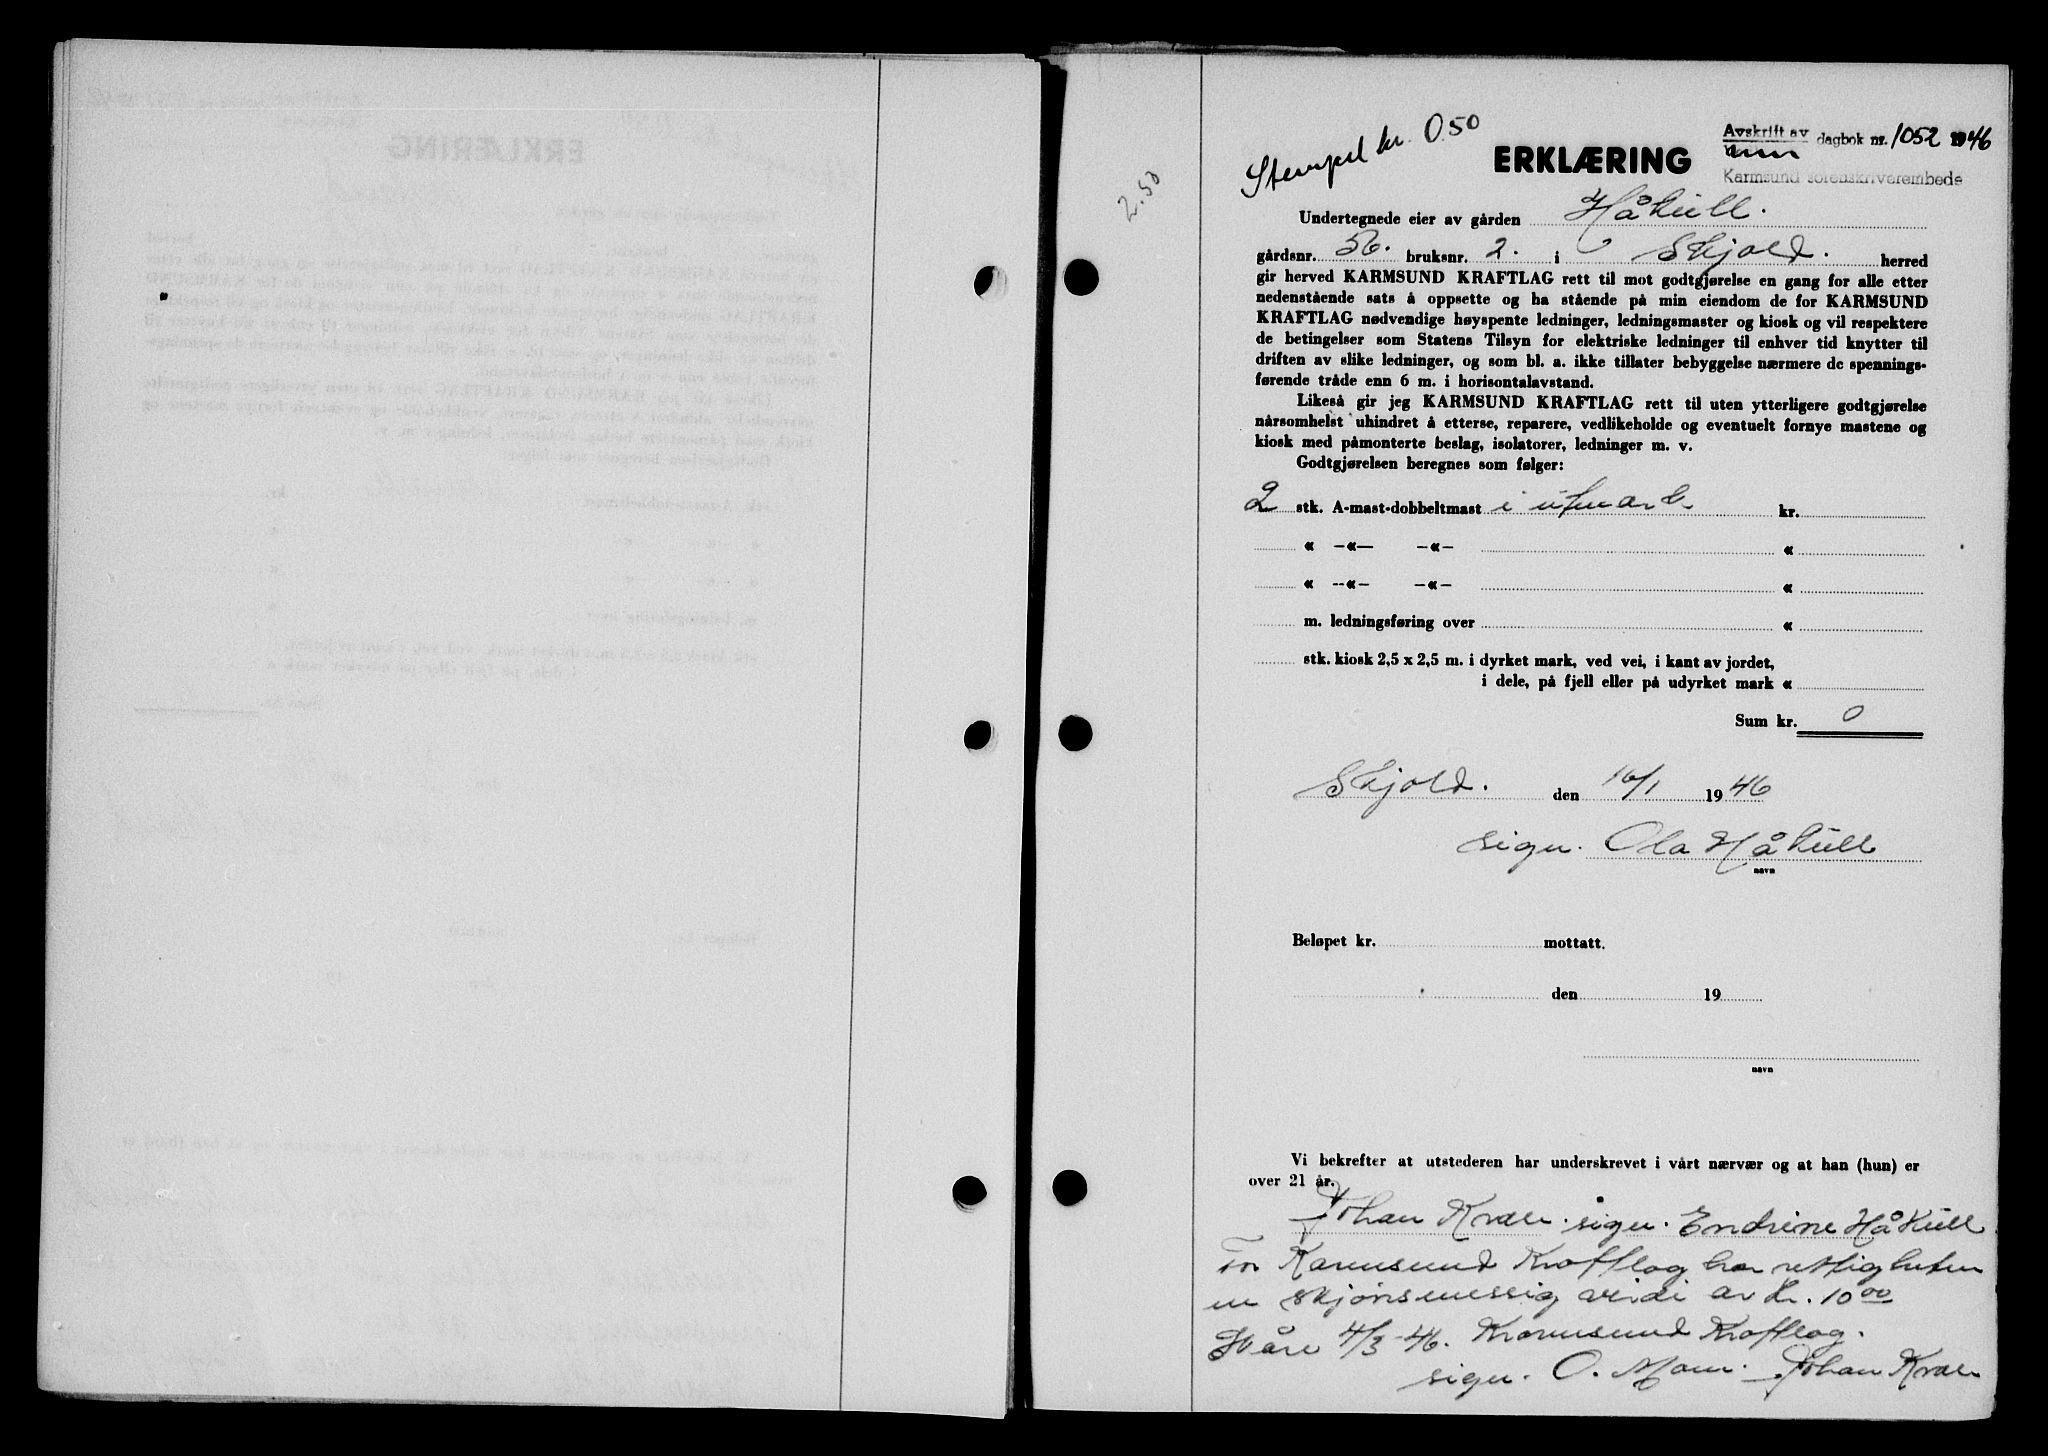 Stempel kr. 0.50
2.50
Avskrift av
dagbok nr. 1052 1946
Karmsund sorenskriverembede
ERKLÆRING
Undertegnede eier av gården Håkull.
gårdsnr. 56. bruksnr. 2. i Skjold. herred
gir herved KARMSUND KRAFTLAG rett til mot godtgjørelse en gang for alle etter
nedenstående sats å oppsette og ha stående på min eiendom de for KARMSUND
KRAFTLAG nødvendige høyspente ledninger, ledningsmaster og kiosk og vil respektere
de betingelser som Statens Tilsyn for elektriske ledninger til enhver tid knytter til
driften av slike ledninger, og som bl. a. ikke tillater bebyggelse nærmere de spennings-
førende tråde enn 6 m. i horisontalavstand.
Likeså gir jeg KARMSUND KRAFTLAG rett til uten ytterligere godtgjørelse
nårsomhelst uhindret å etterse, reparere, vedlikeholde og eventuelt fornye mastene og
kiosk med påmonterte beslag, isolatorer, ledninger m. v.
Godtgjørelsen beregnes som følger:
2 stk. A-mast-dobbeltmast i utmark kr.
« —«— —«— «
« —«— —«— «
m. ledningsføring over «
stk. kiosk 2,5 x 2,5 m. i dyrket mark, ved vei, i kant av jordet,
i dele, på fjell eller på udyrket mark «
Sum kr. 0
Skjold. den 16/1 1946
sign. Ola Håkull
navn
Beløpet kr. mottatt.
den 19
navn
Vi bekrefter at utstederen har underskrevet i vårt nærvær og at han (hun) er
over 21 år.
Johan Kvale. sign. Endrine Håkull
For Karmsund Kraftlag har rettigheten
en skjønsmessig verdi av kr. 10 00
Håre 4/3-46. Karmsund Kraftlag.
sign. O. Mom. Johan Kvale